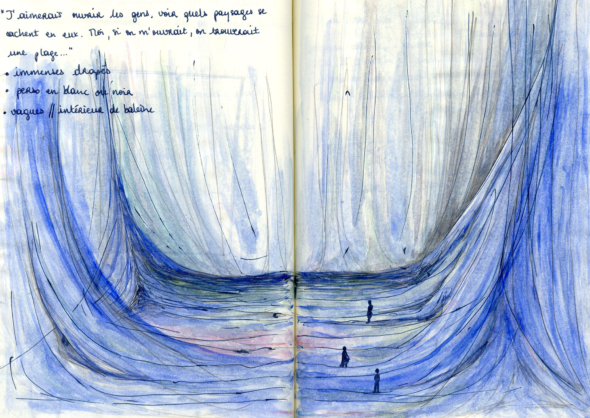 "J'aimerais ouvrir les gens, voir quels paysages se
cachent en eux. Moi, si on m'ouvrait, on trouverait
une plage..."
• immenses drapés
• perso en blanc ou noir
• vagues // intérieur de baleine